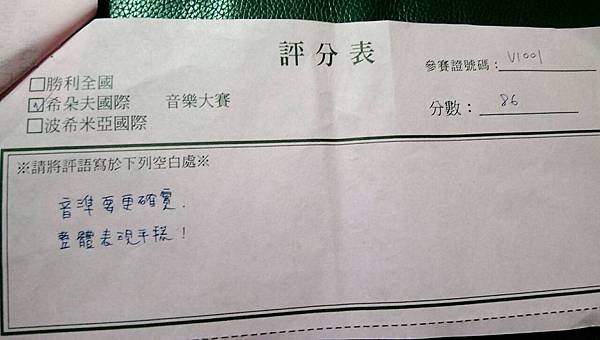 評分表
參賽證號碼：V1001
□勝利全國
☑希朵夫國際 音樂大賽
分數：86
□波希米亞國際
※請將評語寫於下列空白處※
音準要更確實.
整體表現平穩！